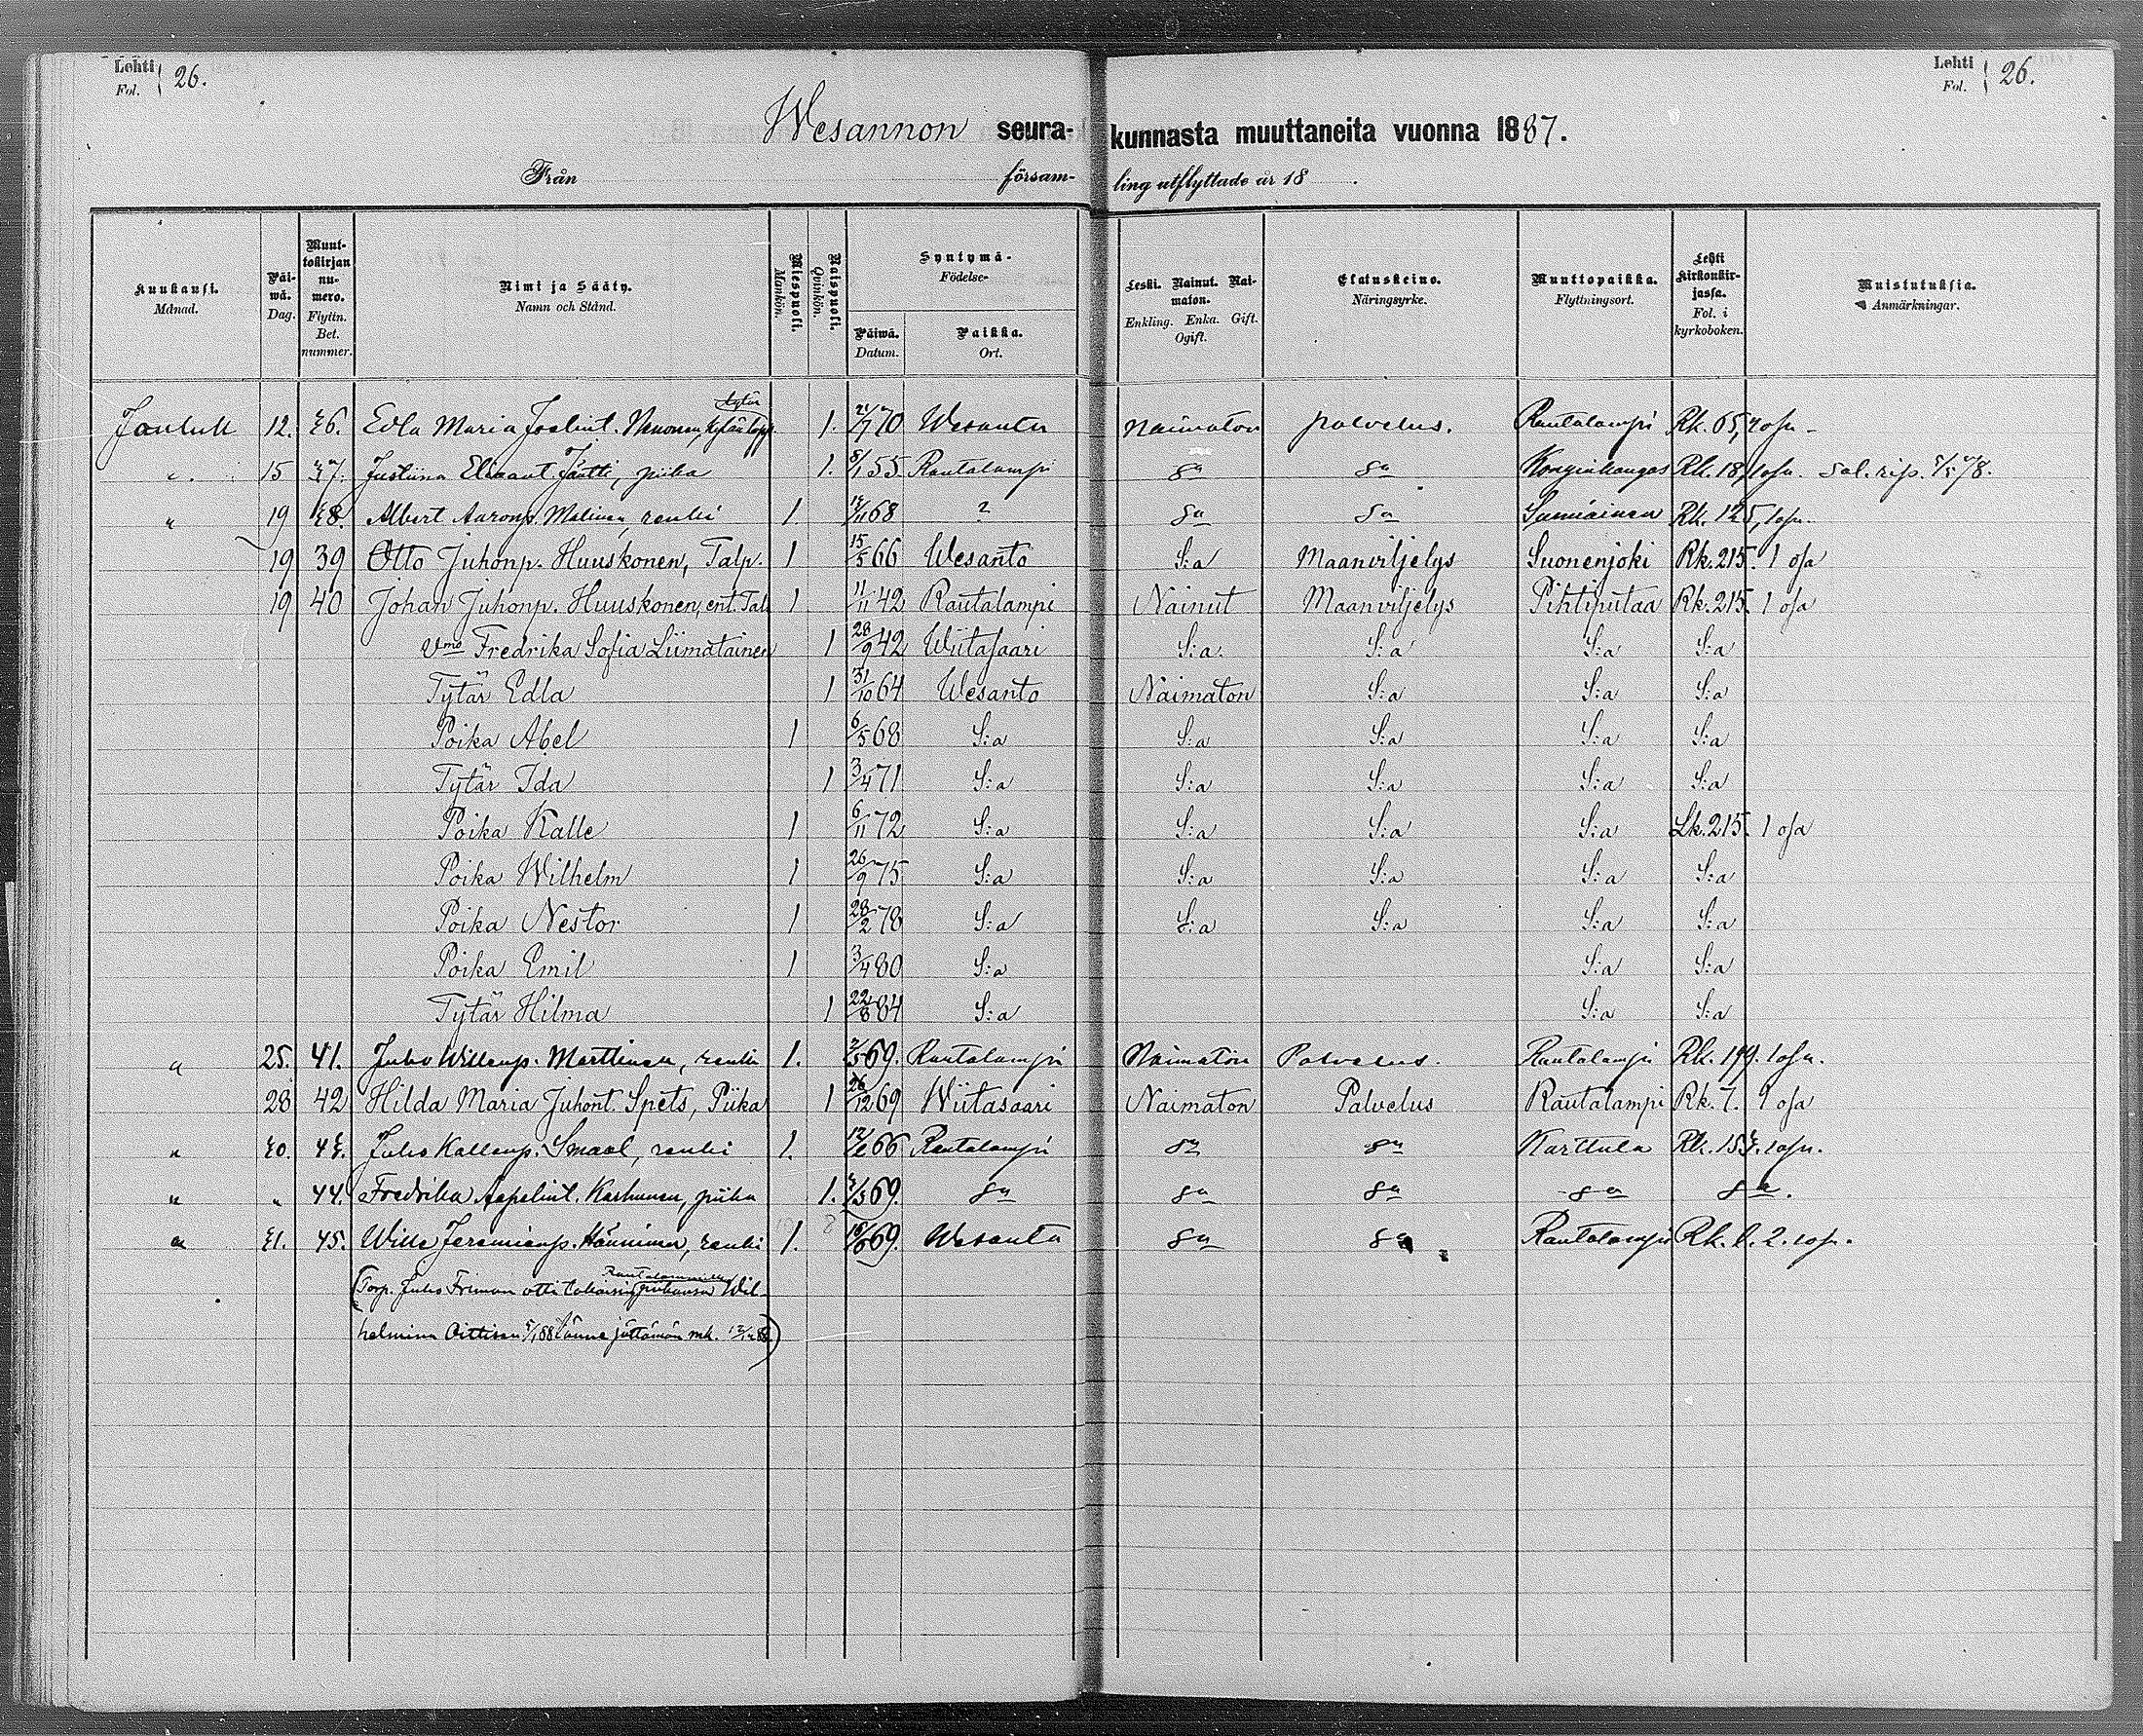 Lehti Fol. 26.
Lehti Fol. 26.
Wesannon seurakunnasta muuttaneita vuonna 1887.
Från församling utflyttade år 18 .
Kuukausi. Månad.
Päiwä. Dag.
Muuttokirjan numero. Flyttn. Bet. nummer.
Nimi ja Sääty. Namn och Stånd.
Miespuoli. Mankön.
Naispuoli. Qvinkön.
Syntymä- Födelse-
Päiwä. Datum.
Paikka. Ort.
Leski. Nainut. Naimaton. Enkling. Enka. Gift. Ogift.
Elatuskeino. Näringsyrke.
Muuttopaikka. Flyttningsort.
Lehti kirkonkirjassa. Fol. i kyrkoboken.
Muistutuksia. Anmärkningar.
Jouluk 12. 36. Edla Maria Nenonen, tytär 1. 21/7 70 Wesanto Naimaton palvelus. Rautalampi Rk. 65, 2 osa
" 15 37. Justiina Jäntti, piika 1. 8/1 55 Rautalampi sa sa Konginkangas Rk. 18, 1 osa.
" 19 38. Albert Aaronp. Malinen, renki 1. 68 ? sa sa Sumiainen Rk. 125, 1 osa.
19 39 Otto Juhonp. Huuskonen, Talp. 1 15/5 66 Wesanto S:a Maanviljelys Suonenjoki Rk. 215. 1 osa
19 40 Johan Juhonp. Huuskonen, ent. Tal. 1 11/11 42 Rautalampi Nainut Maanviljelys Pihtiputaa Rk. 215. 1 osa
Vmo Fredrika Sofia Liimatainen 1 28/9 42 Wiitasaari S:a S:a S:a S:a
Tytär Edla 1 31/10 64 Wesanto Naimaton S:a S:a S:a
Poika Abel 1 6/5 68 S:a S:a S:a S:a S:a
Tytär Ida 1 3/4 71 S:a S:a S:a S:a S:a
Poika Kalle 1 6/11 72 S:a S:a S:a S:a Lk. 215. 1 osa
Poika Wilhelm 1 26/9 75 S:a S:a S:a S:a S:a
Poika Nestor 1 28/2 78 S:a S:a S:a S:a S:a
Poika Emil 1 3/4 80 S:a S:a S:a
Tytär Hilma 1 22/8 84 S:a S:a S:a
" 25. 41. Juho Willemp. Marttinen, renki 1. 2/5 69. Rautalampi Naimaton Palvelus. Rautalampi Rk. 199. 1 osa.
28 42 Hilda Maria Juhont. Spets, Piika 1 26/12 69 Wiitasaari Naimaton Palvelus Rautalampi Rk. 7. 1 osa
" 30. 43. Juho Kallenp. Smaal, renki 1. 66 Rautalampi sa sa Karttula Rk. 153. 1 osa.
" " 44. Fredrika Aapelint. Karhunen, piika 1. 3/3 69. sa sa sa sa sa.
" 31. 45. Wille Jeremianp. Hänninen, renki 1. 69. Wesanto sa sa Rautalampi Rk. l. 2. 1 osa.
(Torp. Juho Friman otti takaisin Rautalammilla Wil-
helmina Oittisen tänne jättämän mk.